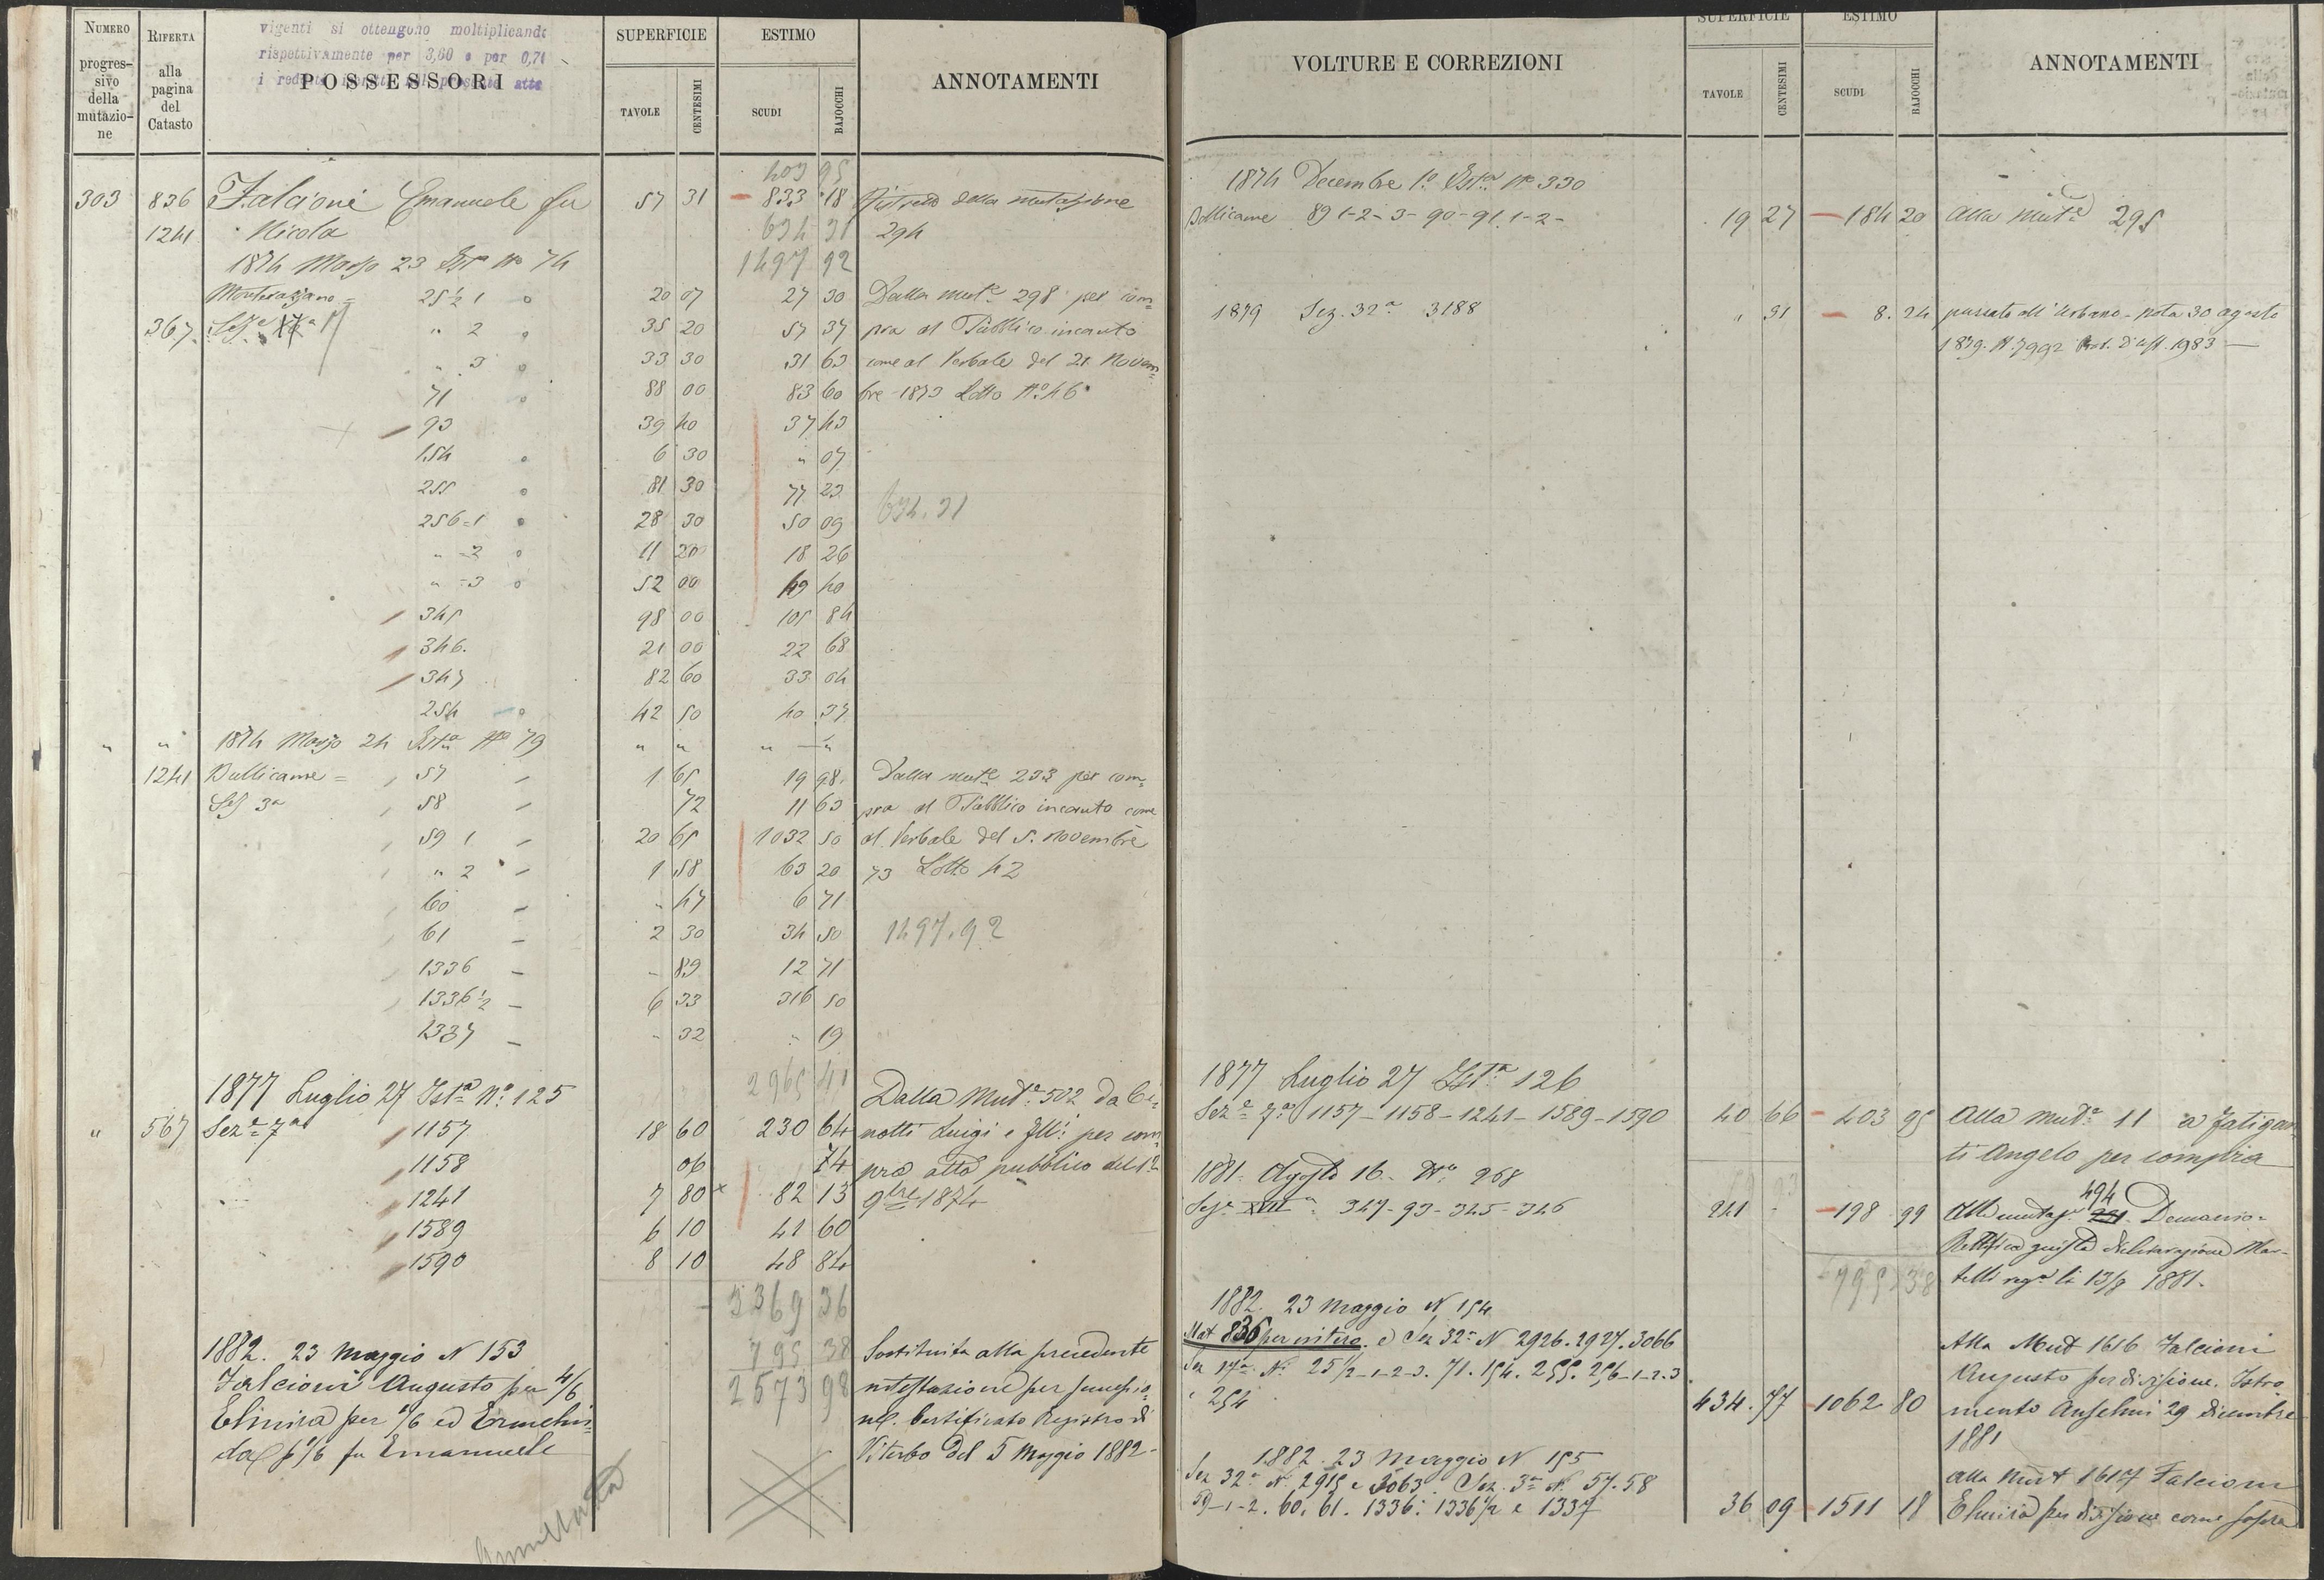 NUMERO progressivo della mutazione
RIFERTA alla pagina del Catasto
vigenti si ottengono moltiplicando
rispettivamente per 3,60 e per 0,7
POSSESSORI
SUPERFICIE
TAVOLE CENTESIMI
ESTIMO
SCUDI BAJOCCHI
ANNOTAMENTI
403 95
303 836 Falcioni Emanuele fu 57 31 833 18 della mutazione
1241 Nicola 634 31 294
1874 Marzo 23 Ista No 74 1497 92
Monterazzano = 25 ½ 1 20 07 27 30 Dalla muta 298 per com=
367 Seze 17 " 2 35 20 57 37 pra al Pubblico incanto
" 3 33 30 31 63 come al Verbale del 21 Novem=
71 88 00 83 60 bre 1873 Lotto No 46
93 39 40 37 43
154 6 30 " 07
255 81 30 77 23
256=1 28 30 50 09 634.31
" =2 11 20 18 26
" =3 52 00 49 40
345 98 00 105 84
346. 21 00 22 68
347 82 60 33 04
254 42 50 40 37
" " 1874 Marzo 24 Ista No 79 " " " "
1241 Bullicame = 57 1 65 19 98 Dalla muta 233 per com=
Sez 3a 58 72 11 63 pra al Pubblico incanto come
59 1 20 65 1032 50 al Verbale del 5. Novembre
" 2 1 58 63 20 73 Lotto 42
60 " 47 6 71
61 2 30 34 50 1497.92
1336 " 89 12 71
1336 ½ 6 33 316 50
1337 " 32 " 19
2965 41
1877 Luglio 27 Ista No 125 Dalla Muta 502 da Ci=
" 567 Seze 7a 1157 18 60 230 64 notti Luigi e flli per com=
1158 06 74 pra atto pubblico del 12
1241 7 80 82 13 9bre 1874
1589 6 10 41 60
1590 8 10 48 84
3369 36
1882. 23 Maggio N 153 795 38 Sostituita alla precedente
Falcioni Augusto per 4/6 2573 98 intestazione per successio
Elmira per 1/6 ed Ermelin= ne. Certificato Registro di
da p 1/6 fu Emanuele Viterbo del 5 Maggio 1882
Annullata
VOLTURE E CORREZIONI
SUPERFICIE
TAVOLE CENTESIMI
ESTIMO
SCUDI BAJOCCHI
ANNOTAMENTI
1874 Decembre 1o Ista No 330
Bullicame 89 1-2-3-90-91 1-2- 19 27 184 20 alla muta 295
1879 Sez. 32a 3188 " 31 8. 24 passato all'Urbano - nota 30 agosto
1879. N. 7992 1983
1877 Luglio 27 Ista 126
Seze 7a 1157-1158-1241-1589-1590 40 66 403 95 alla muta 11 a Fatigan=
ti Angelo per compra
1881. Agosto 16. No 268
Seze XVII 347-93-345-346 241 - 198 99 Alla mutaz. 494 Demanio-
Rettifica giusta dichiarazione Mar-
795 38 telli li 13/8 1881.
1882. 23 Maggio N 154
Mat 836 per intero. e Sez 32a N 2926. 2927. 3066 Alla Mut 1616 Falcioni
Sez 17a N. 25 ½-1-2-3. 71. 154. 255. 256-1-2-3 Augusto per divisione. Istro
" 254 434. 77 1062 80 mento Anselmi 29 Dicembre
1881
1882 23 Maggio N 155
Sez 32a N. 2915 e 3063. Sez. 3a N. 57. 58 alla Mut 1617 Falcioni
59-1-2. 60. 61. 1336. 1336 ½ e 1337 36 09 1511 18 Elmira per divisione come sopra